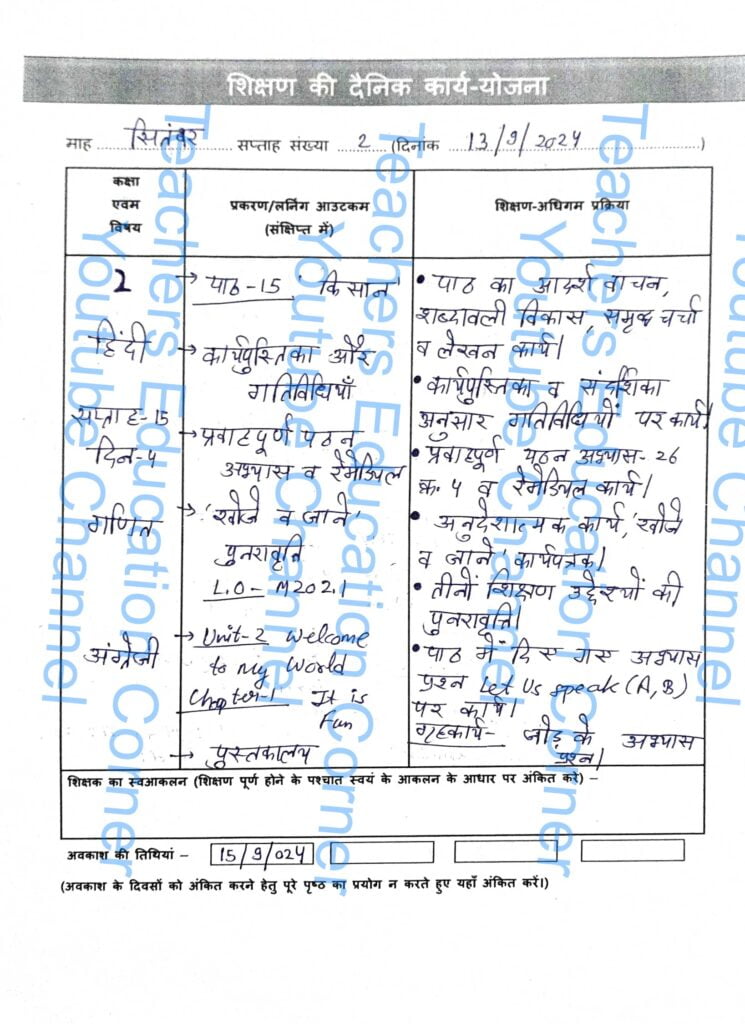 शिक्षण की दैनिक कार्य-योजना
माह ..... सितंबर ..... सप्ताह संख्या ... 2 ... (दिनांक ... 13/9/2024 ...)
कक्षा
एवम
विषय
प्रकरण/लर्निंग आउटकम
(संक्षिप्त में)
शिक्षण-अधिगम प्रक्रिया
2
हिंदी
सप्ताह-15
दिन-4
गणित
अंग्रेजी
→ पाठ-15 'किसान'
→ कार्यपुस्तिका और
गतिविधियाँ
→ प्रवाहपूर्ण पठन
अभ्यास व रेमेडियल
→ 'खोजे व जाने'
पुनरावृत्ति
L.O- M202.1
→ Unit-2 Welcome
to my World
Chapter-1 It is
Fun
→ पुस्तकालय
• पाठ का आदर्श वाचन,
शब्दावली विकास, समृद्ध चर्चा
व लेखन कार्य।
• कार्यपुस्तिका व संदर्शिका
अनुसार गतिविधियों पर कार्य।
• प्रवाहपूर्ण पठन अभ्यास-26
क्र. 4 व रेमेडियल कार्य।
• अनुदेशात्मक कार्य, 'खोजे
व जाने' कार्यपत्रक।
• तीनों शिक्षण उद्देश्यों की
पुनरावृत्ति।
• पाठ में दिए गए अभ्यास
प्रश्न Let Us speak (A, B)
पर कार्य।
गृहकार्य- जोड़ के अभ्यास
प्रश्न।
शिक्षक का स्वआकलन (शिक्षण पूर्ण होने के पश्चात स्वयं के आकलन के आधार पर अंकित करें) –
अवकाश की तिथियां – 15/9/024
(अवकाश के दिवसों को अंकित करने हेतु पूरे पृष्ठ का प्रयोग न करते हुए यहाँ अंकित करें।)
Teachers Education Corner
Youtube Channel
Teachers Education Corner
Youtube Channel
Teachers Education Corner
Youtube Channel